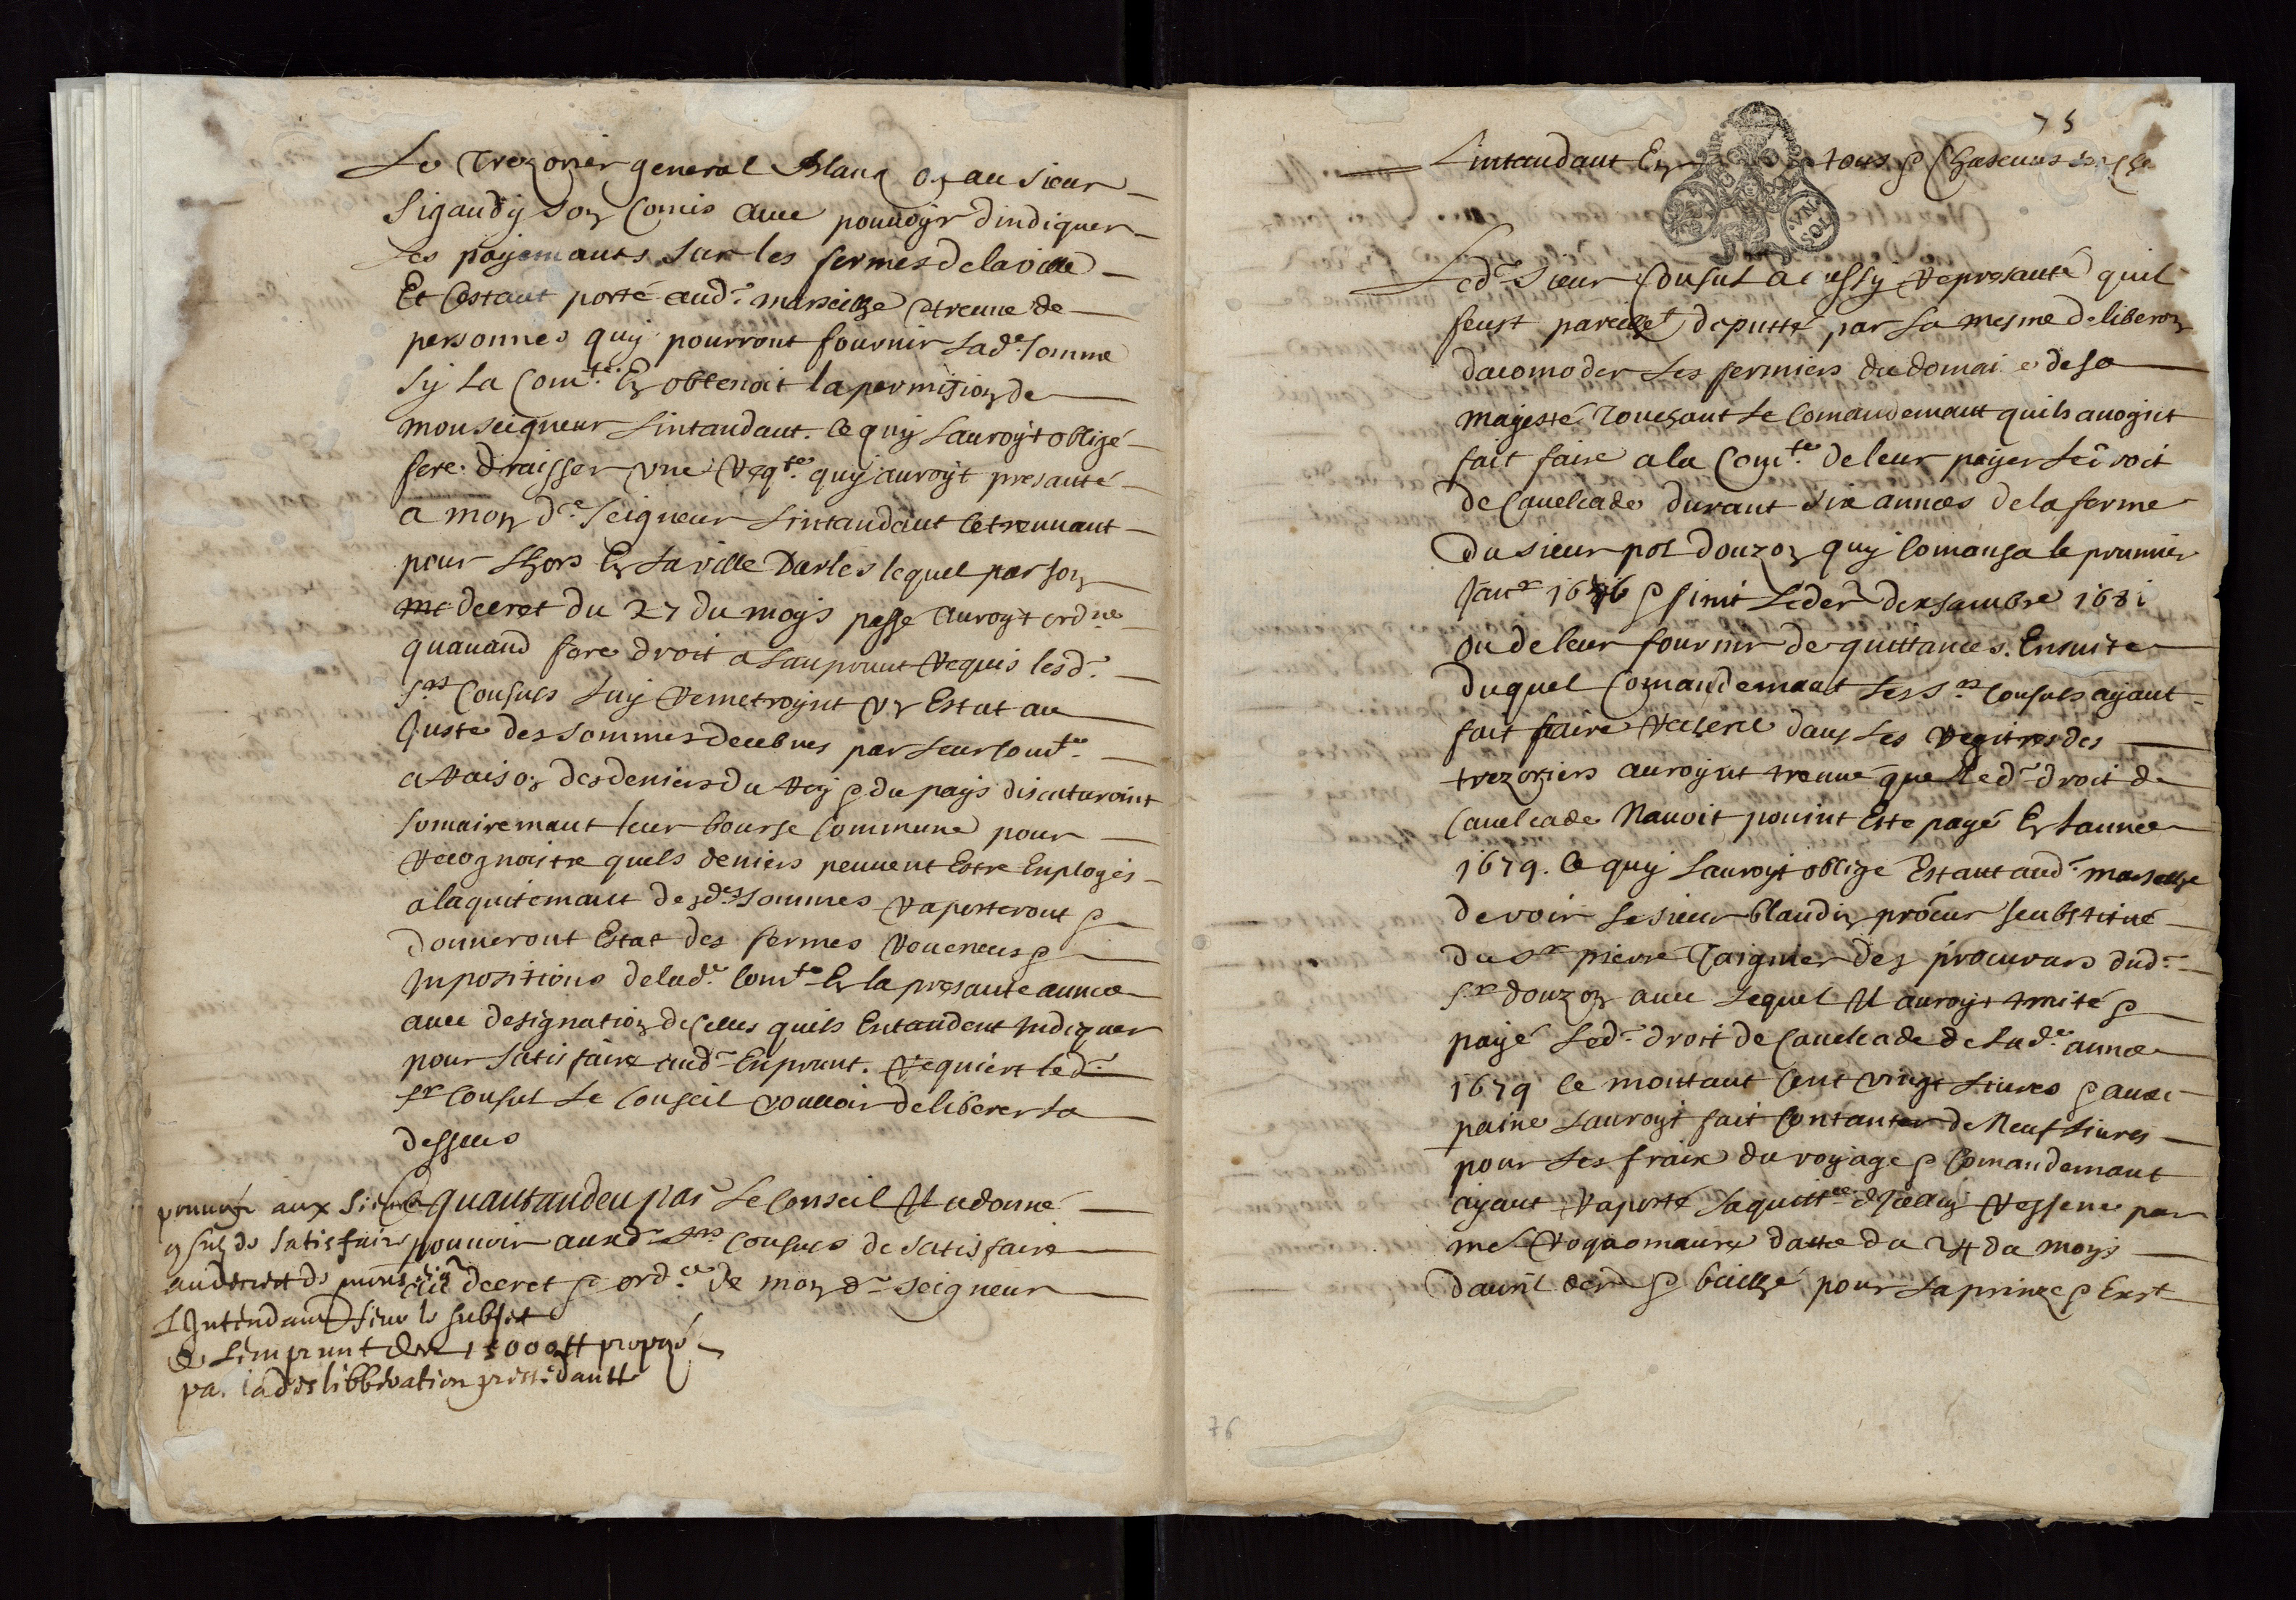 Le Trezorier general Blanq ou au sieur
Sigaudy son Comis avec pouvoyr dindiquer
Les payemants sur les fermes de la ville
Et Cestant porté aud.t marseille a treuve de
personnes quy pourront fournir lad.e somme
sy La Com.té En obtenoit la permision de
monseigneur Lintandant. Ce quy Lauroyt obligé
fere draisser une Req.te quy auroyt presanté
a mon d.t seigneur Lintandant Ce treuvant
pour Lhors En La ville Darles lequel par son
decret du 27 du moys passe auroyt ord.ne
quavand fere droit a Lanprunt Requis lesd.
s.rs Consuls Luy Remetroynt un Estat au
Juste des sommes deubues par Leur Com.té
a Raison des deniers du Roy et du pays discuteroint
somairemant leur bourse Commune pour
Recognoistre quels deniers peuvent Estre Enployés
a laquitemant desd.es sommes raporteront et
donneront Estat des fermes Revenus et
Inpositions de lad.e Com.té En la presante année
avec designation de Celles quils Entandent Indiquer
pour satisfaire aud.t Enprunt. Requiert led.t
s.r Consul Le Conseil vouloir deliberer La
dessus
Ce quantandeu par Le Conseil Il a donné
pouvoir auxd. s.rs Consuls de satisfaire
au decret et ord.ce de mon d.t seigneur
pouvoir aux sieurs
Consuls de satisfaire
au decret de
L'Intendant sur le subjet
de Lemprunt de 15000 ₶ propozé
par la deslibberation pressedantte
75
Lintandant En tous et Chascuns
Led.t sieur Consul a aussy Represanté quil
feust pareillem.t deputté par La mesme deliberon
dacomoder Les fermiers du domaine de sa
majesté Touchant Le Comandemant quils avoynt
fait faire a la Com.té de leur payer Le droit
de Cavalcade durant six années de la ferme
du sieur pol douzon quy Comansa le prumier
Janv.r 1676 et finit Le der.r dexsambre 1681
ou de leur fournir de quittances. Ensuite
duquel Comandemant Les s.rs Consuls ayant
fait faire recherche dans Les Regitres des
trezoriers auroynt treuvé que Led.t droit de
Cavalcade Navoit pouint Esté payé En Lannée
1679. Ce quy Lauroyt obligé Estant aud.t marseille
de voir Le sieur blandin procur.r seubstitué
du s.r pierre Taignier des procureurs dud.t
s.r douzon avec Lequel Il auroyt traité et
payé Led.t droit de Cavalcade de Lad.e année
1679 Ce montant Cent vingt Livres et avec
paine Lauroyt fait Contanter de Neuf Livres
pour Les fraix du voyage et Comandemant
ayant Raporté La quitt.ce dicelluy Ressene par
me Roquomaure datte du 24 du moys
davril der.r et baillé pour La prinze et Ext
76